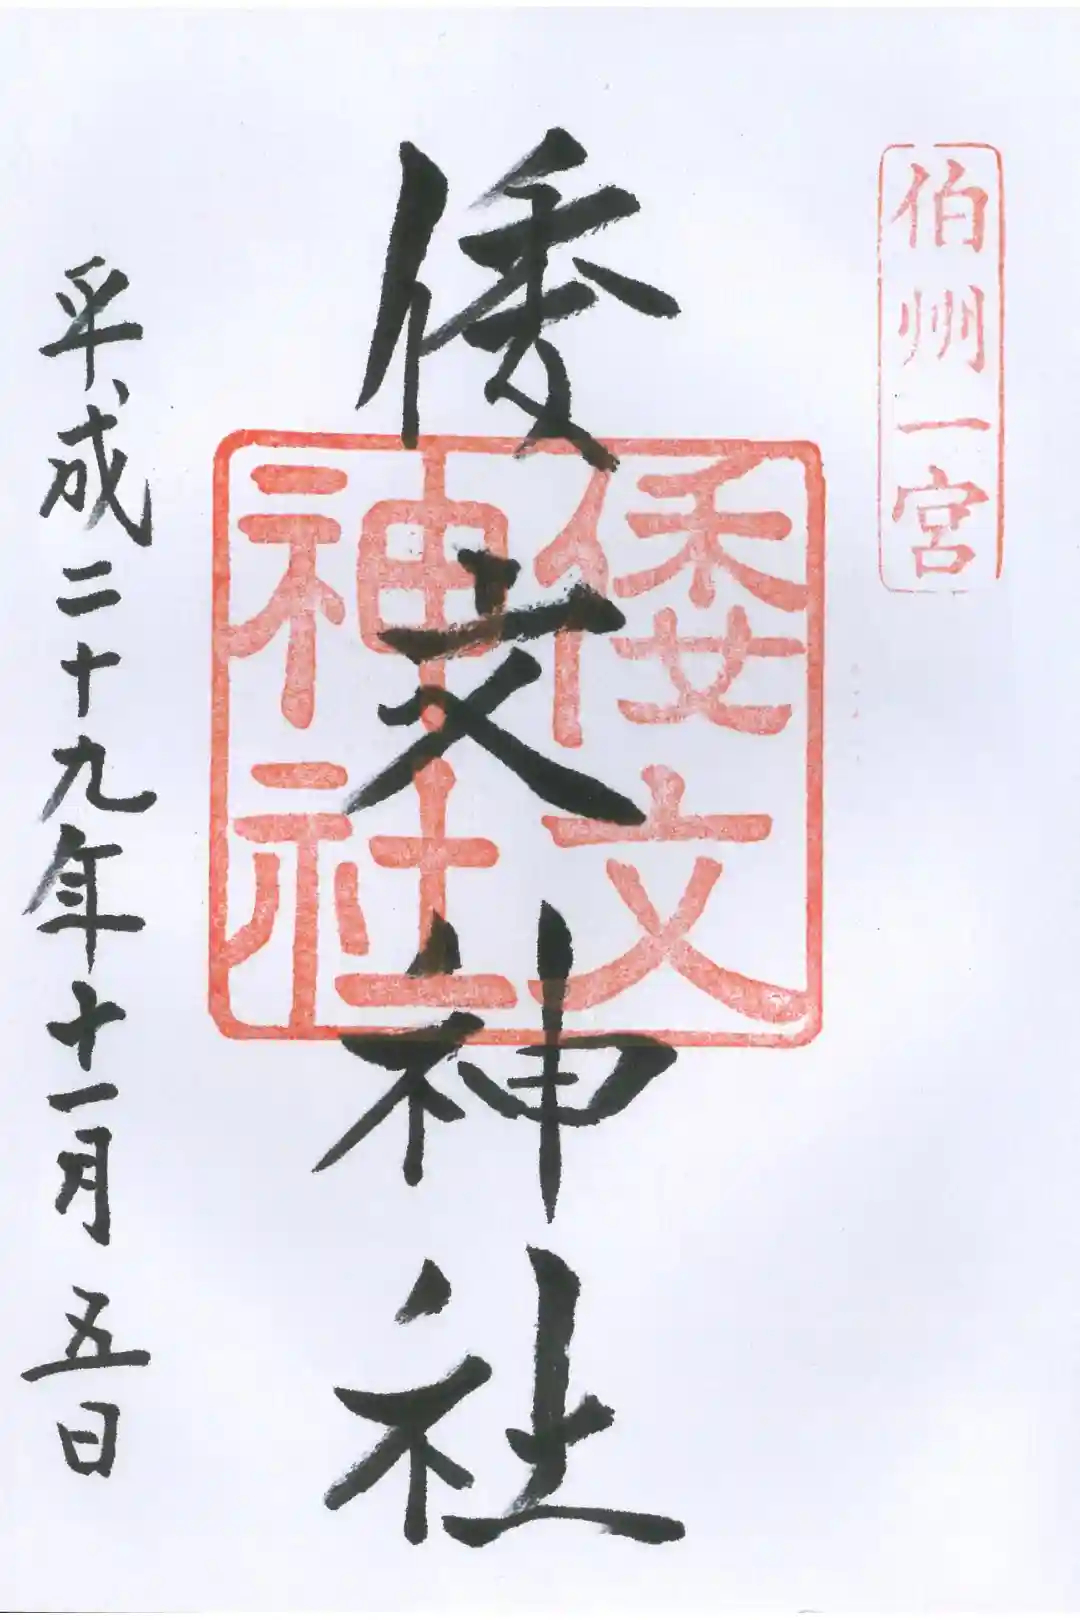 伯州一宮
倭文神社
倭文
神社
平成二十九年十一月五日